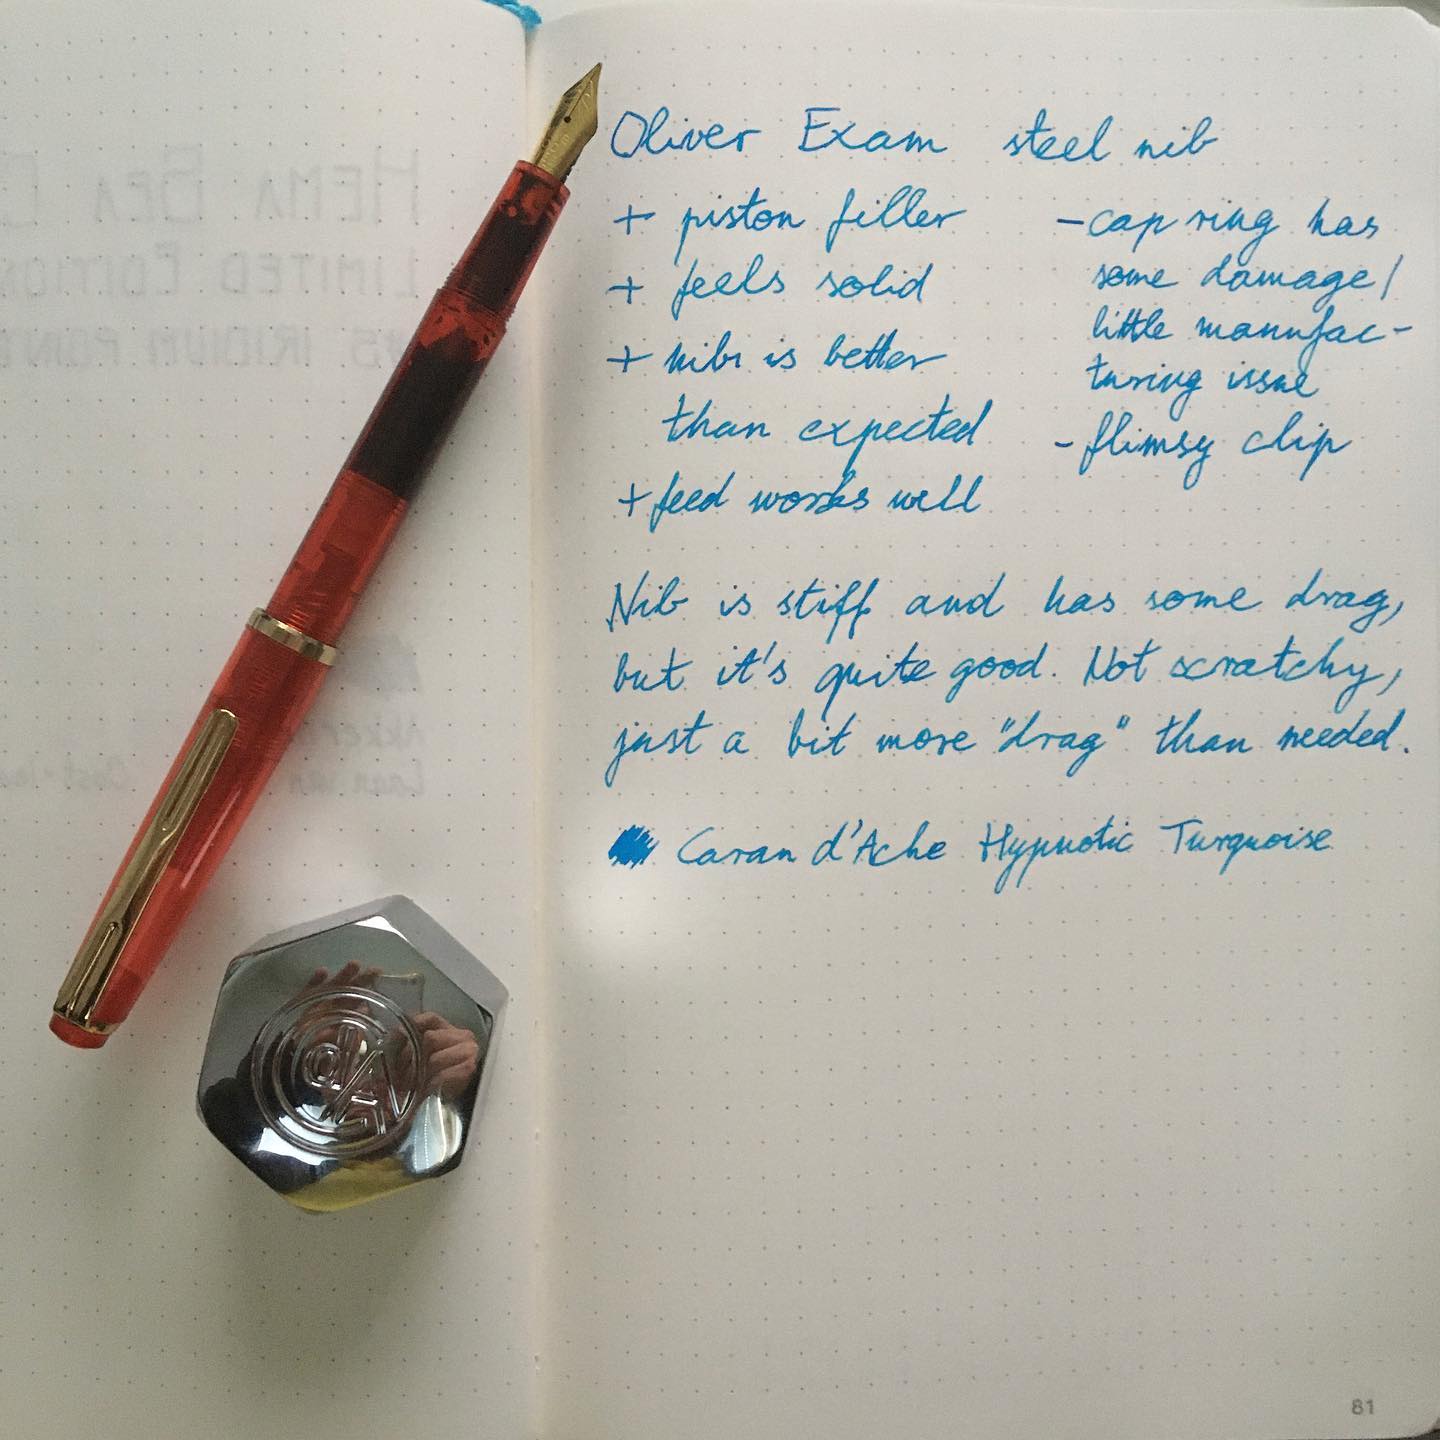 Oliver Exam steel nib
+ piston filler
+ feels solid
+ nib is better
than expected
+ feed works well
- cap ring has
some damage/
little manufac-
turing issue
- flimsy clip
Nib is stiff and has some drag,
but it's quite good. Not scratchy,
just a bit more "drag" than needed.
Caran d'Ache Hypnotic Turquoise
81
CdA